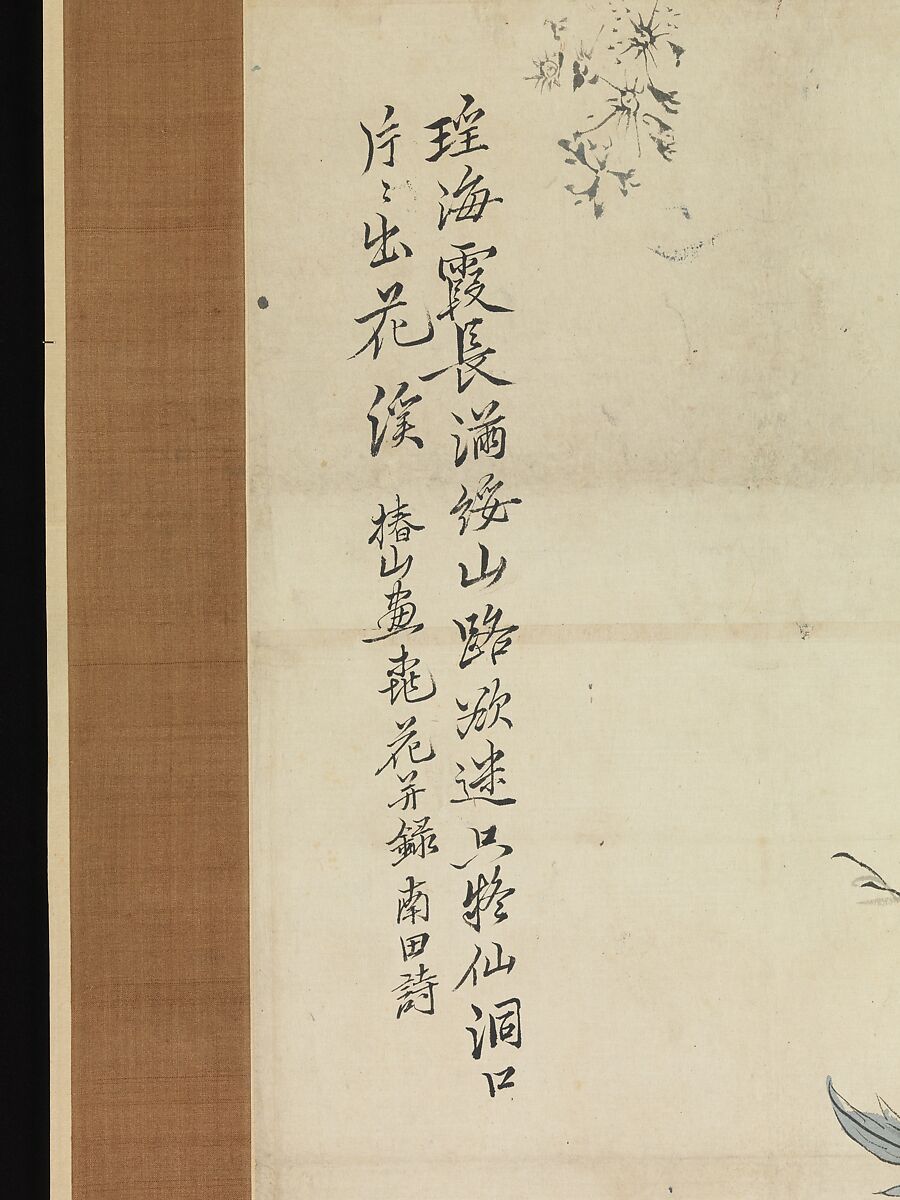 瑶海霞長滿綏山路欲迷只疑仙洞口
片〻出花溪　椿山畫桃花并録南田詩